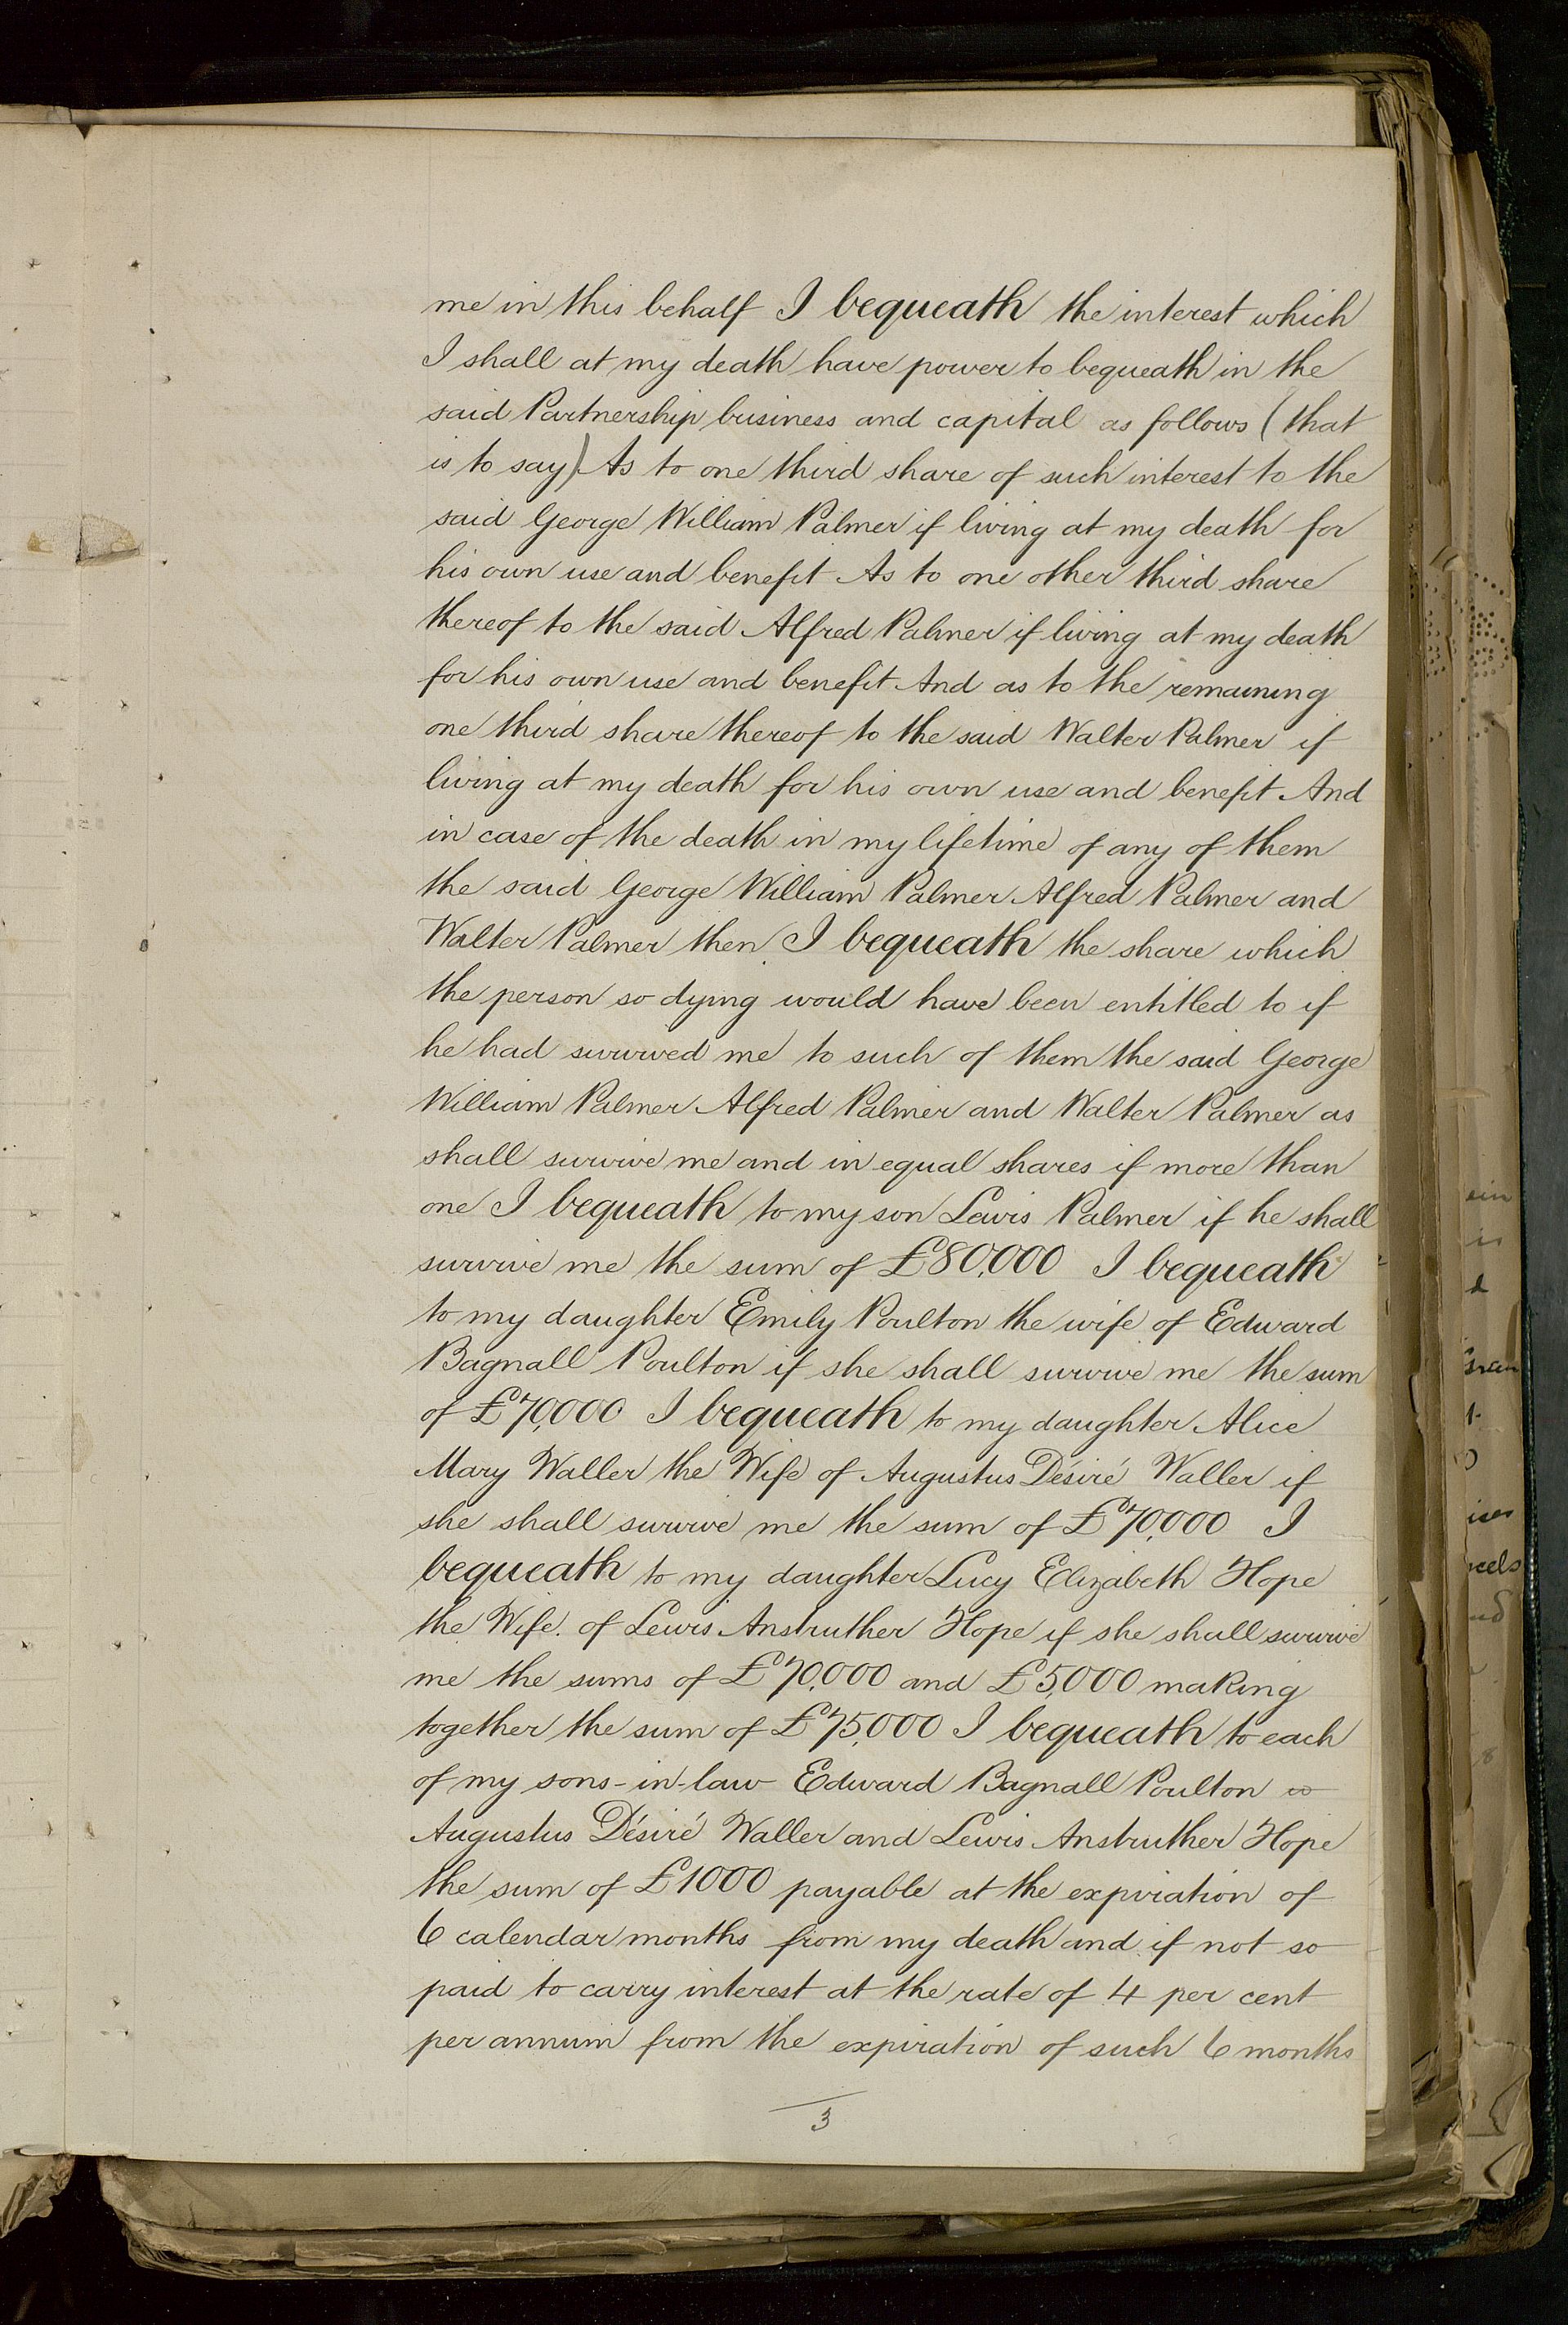 me in this behalf I bequeath the interest which
I shall at my death have power to bequeath in the
said Partnership business and capital as follows (that
is to say) As to one third share of such interest to the
said George William Palmer if living at my death for
his own use and benefit As to one other third share
thereof to the said Alfred Palmer if living at my death
for his own use and benefit And as to the remaining
one third share thereof to the said Walter Palmer if
living at my death for his own use and benefit And
in case of the death in my lifetime of any of them
the said George William Palmer Alfred Palmer and
Walter Palmer then I bequeath the share which
the person so dying would have been entitled to if
he had survived me to such of them the said George
William Palmer Alfred Palmer and Walter Palmer as
shall survive me and in equal shares if more than
one I bequeath to my son Lewis Palmer if he shall
survive me the sum of £80,000 I bequeath
to my daughter Emily Poulton the wife of Edward
Bagnall Poulton if she shall survive me the sum
of £70,000 I bequeath to my daughter Alice
Mary Waller the Wife of Augustus Désiré Waller if
she shall survive me the sum of £70,000 I
bequeath to my daughter Lucy Elizabeth Hope
the Wife of Lewis Anstruther Hope if she shall survive
me the sums of £70,000 and £5,000 making
together the sum of £75,000 I bequeath to each
of my sons-in-law Edward Bagnall Poulton
Augustus Désiré Waller and Lewis Anstruther Hope
the sum of £1000 payable at the expiration of
6 calendar months from my death and if not so
paid to carry interest at the rate of 4 per cent
per annum from the expiration of such 6 months
3